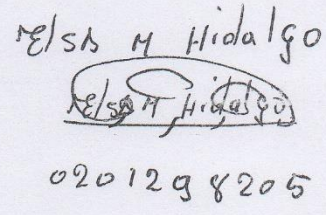 Elsa M Hidalgo
Elsa M, Hidalgo
0201298205